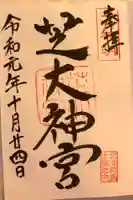 奉拝
芝大神宮
令和元年十月廿四日